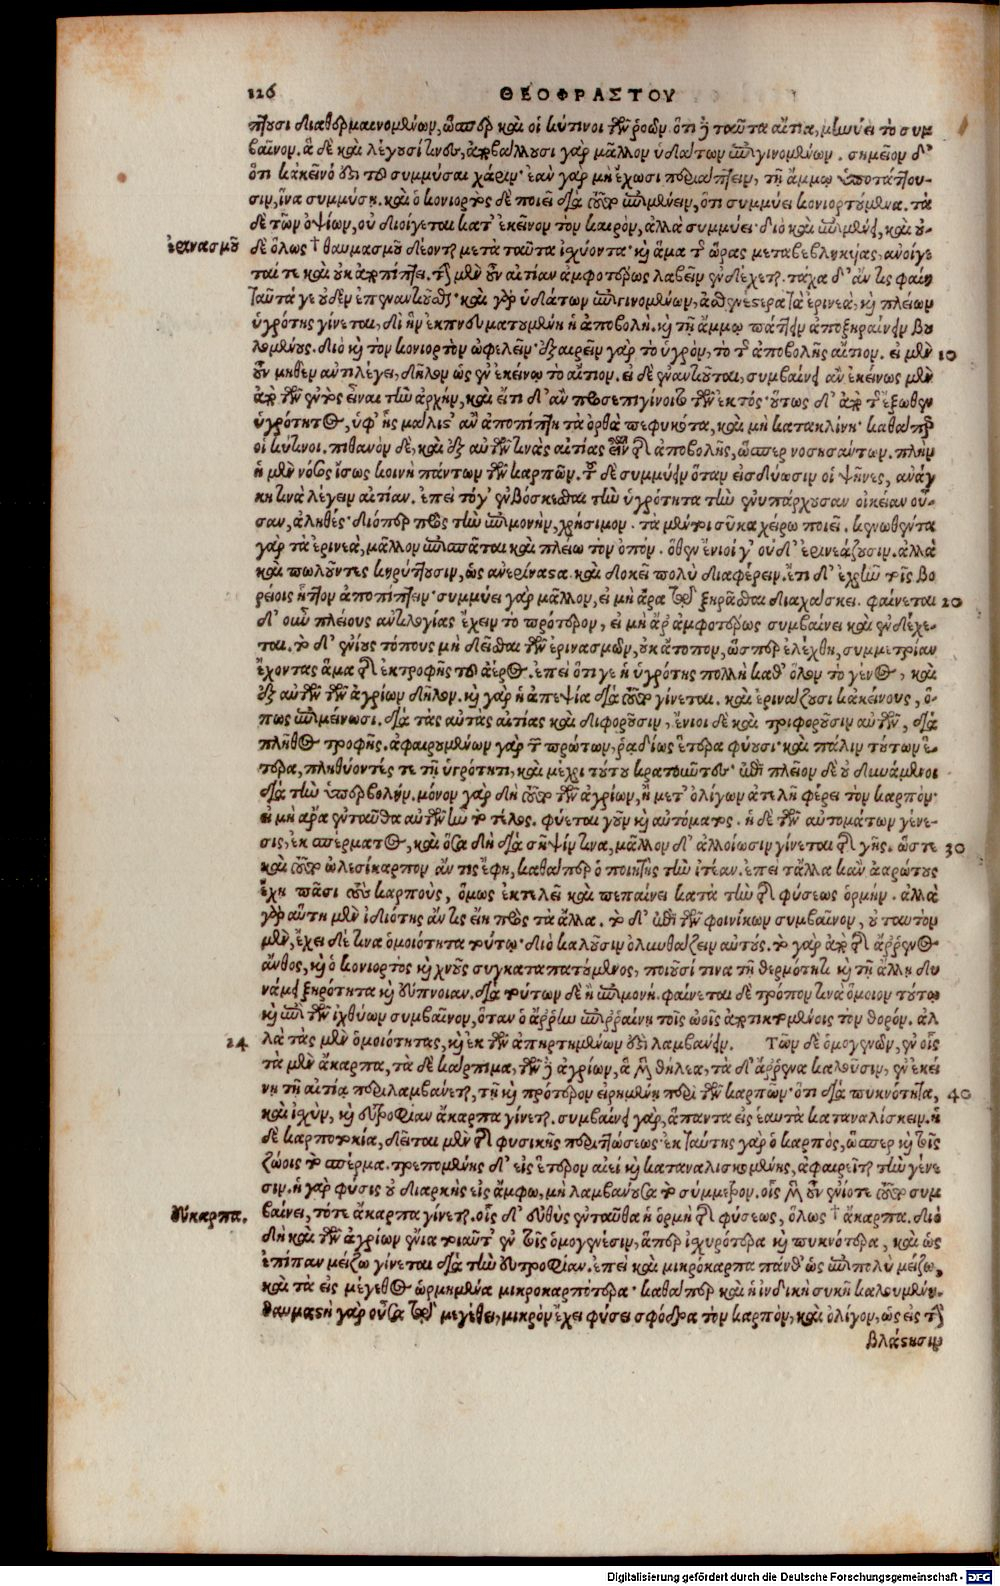 126 ΘΕΟΦΡΑΣΤΟΥ
πτουσι διαθερμαινομένων, ὥσπερ καὶ οἱ κύτινοι τῶν ῥοῶν. ὅτι δὲ ταῦτα αἴτια, μηνύει τὸ συμ
βαῖνον. ἃ δὲ καὶ λέγουσί τινες, ἀποβάλλουσι γὰρ μᾶλλον ὑδάτων ἐπιγινομένων. σημεῖον δ'
ὅτι κἀκεῖνό ἐστι τοῦ συμμύσαι χάριν· ἐὰν γὰρ μὴ ἔχωσι περιάπτειν, τῇ ἄμμῳ ὑποτάττου-
σιν, ἵνα συμμύσῃ. καὶ ὁ κονιορτὸς δὲ ποιεῖ διὰ τοῦτο ἐπιμένειν, ὅτι συμμύει κονιορτούμενα. τὰ
δὲ τῶν ὀψίων, οὐ διοίγεται κατ' ἐκεῖνον τὸν καιρὸν, ἀλλὰ συμμύει· διὸ καὶ ἐπιμένει, καὶ οὐ-
ἐρινασμοῦ
δὲ ὅλως † θαυμασμοῦ δέονται μετὰ ταῦτα ἰσχύοντα· καὶ ἅμα τῆς ὥρας μεταβεβληκυίας, ἀνοίγε
ταί τε καὶ οὐκ ἀποπίπτει. τὴν μὲν οὖν αἰτίαν ἀμφοτέρως λαβεῖν ἐνδέχεται. τάχα δ' ἄν τις φαίη
ταῦτά γε οὐδὲν ἐπεναντιοῦσθαι· καὶ γὰρ ὑδάτων ἐπιγινομένων, ἀσθενέστερα τὰ ἐρινεὰ, καὶ πλείων
ὑγρότης γίνεται, δι' ἣν ἐκπνευματουμένη ἡ ἀποβολή. καὶ τῇ ἄμμῳ πάττειν ἀποξηραίνειν βου
λομένους. διὸ καὶ τὸν κονιορτὸν ὠφελεῖν· ἐξαιρεῖν γὰρ τὸ ὑγρὸν, τὸ τῆς ἀποβολῆς αἴτιον. εἰ μὲν 10
οὖν μηθὲν ἀντιλέγει, δῆλον ὡς ἐν ἐκείνῳ τὸ αἴτιον. εἰ δὲ ἐναντιοῦται, συμβαίνει ἂν ἐκείνως μὲν
ἀπὸ τῶν ἐντὸς εἶναι τὴν ἀρχὴν, καὶ ἔτι δ' ἂν προσεπιγίνοιτο τῶν ἐκτός· οὕτως δ' ἀπὸ τῆς ἔξωθεν
ὑγρότητος, ὑφ' ἧς μάλιστ' ἂν ἀποπίπτῃ τὰ ὀρθὰ πεφυκότα, καὶ μὴ κατακλίνῃ· καθάπερ
οἱ κύτινοι. πιθανὸν δὲ, καὶ ἐξ αὐτῶν τινὰς αἰτίας εἶναι τῆς ἀποβολῆς, ὥσπερ νοσησάντων. πλὴν
ἡ μὲν νόσος ἴσως κοινὴ πάντων τῶν καρπῶν. τοῦ δὲ συμμύειν ὅταν εἰσδύωσιν οἱ ψῆνες, ἀνάγ
κη τινὰ λέγειν αἰτίαν. ἐπεὶ τό γ' ἐνβόσκεσθαι τὴν ὑγρότητα τὴν ἐνυπάρχουσαν οἰκείαν οὖ-
σαν, ἀληθές· διόπερ πρὸς τὴν ἐπιμονὴν, χρήσιμον. τὰ μέντοι σῦκα χείρω ποιεῖ. κενωθέντα
γὰρ τὰ ἐρινεὰ, μᾶλλον ἐπισπᾶται καὶ πλείω τὸν ὀπόν. ὅθεν ἔνιοί γ' οὐδ' ἐρινεάζουσιν. ἀλλὰ
καὶ πωλοῦντες κηρύττουσιν, ὡς ἀνερίναστα. καὶ δοκεῖ πολὺ διαφέρειν. ἔτι δ' ἐχρῆν τοῖς βο
ρείοις ἧττον ἀποπίπτειν· συμμύει γὰρ μᾶλλον, εἰ μὴ ἄρα τῷ ξηρᾶσθαι διαχάσκει. φαίνεται 20
δ' οὖν πλείους ἀντιλογίας ἔχειν τὸ πρότερον, εἰ μὴ ἄρ' ἀμφοτέρως συμβαίνει καὶ ἐνδέχε-
ται. τὸ δ' ἐνίους τόπους μὴ δεῖσθαι τῶν ἐρινασμῶν, οὐκ ἄτοπον, ὥσπερ ἐλέχθη, συμμετρίαν
ἔχοντας ἅμα τῆς ἐκτροφῆς τοῦ ἀέρος. ἐπεὶ ὅτι γε ἡ ὑγρότης πολλὴ καθ' ὅλον τὸ γένος, καὶ
ἐξ αὐτῶν τῶν ἀγρίων δῆλον. καὶ γὰρ ἡ ἀπεψία διὰ τοῦτο γίνεται. καὶ ἐρινάζουσι κἀκείνους, ὅ-
πως ἐπιμείνωσι. διὰ τὰς αὐτὰς αἰτίας καὶ διφοροῦσιν, ἔνιοι δὲ καὶ τριφοροῦσιν αὐτῶν, διὰ
πλῆθος τροφῆς. ἀφαιρουμένων γὰρ τῶν πρώτων, ῥᾳδίως ἕτερα φύουσι· καὶ πάλιν τούτων ἕ-
τερα, πληθύοντές τε τῇ ὑγρότητι, καὶ μέχρι τούτου κρατοῦντες· ἐπὶ πλεῖον δὲ οὐ δυνάμενοι
διὰ τὴν ὑπερβολήν. μόνον γὰρ δὴ τοῦτο τῶν ἀγρίων, ἢ μετ' ὀλίγων ἀτελῆ φέρει τὸν καρπόν·
εἰ μὴ ἄρα ἐνταῦθα αὐτῶν ἦν τὸ τέλος. φύεται γοῦν καὶ αὐτόματος. ἡ δὲ τῶν αὐτομάτων γένε-
σις, ἐκ σπέρματος, καὶ ὅσα δὴ διὰ σῆψίν τινα, μᾶλλον δ' ἀλλοίωσιν γίνεται τῆς γῆς. ὥστε 30
καὶ τοῦτο ὠλεσίκαρπον ἄν τις ἔφη, καθάπερ ὁ ποιητὴς τὴν ἰτέαν. ἐπεὶ τἄλλα κἂν ἀβρώτους
ἔχῃ πᾶσι τοὺς καρποὺς, ὅμως ἐκτελεῖ καὶ πεπαίνει κατὰ τὴν τῆς φύσεως ὁρμήν. ἀλλὰ
γὰρ αὕτη μὲν ἰδιότης ἄν τις εἴη πρὸς τὰ ἄλλα. τὸ δ' ἐπὶ τῶν φοινίκων συμβαῖνον, οὐ ταυτὸν
μὲν, ἔχει δέ τινα ὁμοιότητα τούτῳ· διὸ καλοῦσιν ὀλυνθάζειν αὐτούς. τὸ γὰρ ἀπὸ τῆς ἄῤῥενος
ἄνθος, καὶ ὁ κονιορτὸς καὶ χνοῦς συγκαταπατούμενος, ποιοῦσί τινα τῇ θερμότητι καὶ τῇ ἄλλῃ δυ
νάμει ξηρότητα καὶ εὔπνοιαν. διὰ τούτων δὲ ἡ ἐπιμονή. φαίνεται δὲ τρόπον τινὰ ὅμοιον τούτῳ
καὶ ἐπὶ τῶν ἰχθύων συμβαῖνον, ὅταν ὁ ἄῤῥην ἐπιῤῥαίνῃ τοῖς ὠοῖς ἀποτικτομένοις τὸν θορόν. ἀλ
24 λὰ τὰς μὲν ὁμοιότητας, καὶ ἐκ τῶν ἀπηρτημένων ἐστὶ λαμβάνειν. Τῶν δὲ ὁμογενῶν, ἐν οἷς
τὰ μὲν ἄκαρπα, τὰ δὲ κάρπιμα, τῶν δὲ ἀγρίων, ἃ δὴ θήλεα, τὰ δ' ἄῤῥενα καλοῦσιν, ἐν ἐκεί
νῃ τῇ αἰτίᾳ περιλαμβάνεται, τῇ καὶ πρότερον εἰρημένῃ περὶ τῶν καρπῶν· ὅτι διὰ πυκνότητα, 40
καὶ ἰσχὺν, καὶ εὐτροφίαν ἄκαρπα γίνεται. συμβαίνει γὰρ, ἅπαντα εἰς ἑαυτὰ καταναλίσκειν. ἡ
δὲ καρποτοκία, δεῖται μὲν τῆς φυσικῆς περιττώσεως· ἐκ ταύτης γὰρ ὁ καρπὸς, ὥσπερ καὶ τοῖς
ζώοις τὸ σπέρμα. τρεπομένης δ' εἰς ἕτερον αἰεὶ καὶ καταναλισκομένης, ἀφαιρεῖται τὴν γένε
σιν. ἡ γὰρ φύσις οὐ διαρκὴς εἰς ἄμφω, μὴ λαμβάνουσα τὸ σύμμετρον. οἷς μὲν οὖν ἐνίοτε τοῦτο συμ
εὔκαρπα.
βαίνει, τότε ἄκαρπα γίνεται. οἷς δ' εὐθὺς ἐνταῦθα ἡ ὁρμὴ τῆς φύσεως, ὅλως † ἄκαρπα. διὸ
δὴ καὶ τῶν ἀγρίων ἔνια τοιαῦτ' ἐν τοῖς ὁμογενέσιν, ἅπερ ἰσχυρότερα καὶ πυκνότερα, καὶ ὡς
ἐπίπαν μείζω γίνεται διὰ τὴν εὐτροφίαν. ἐπεὶ καὶ μικρόκαρπα πάνθ' ὡς ἐπιπολὺ μείζω,
καὶ τὰ εἰς μέγεθος ὡρμημένα μικροκαρπότερα· καθάπερ καὶ ἡ ἰνδικὴ συκῆ καλουμένη.
θαυμαστὴ γὰρ οὖσα τῷ μεγέθει, μικρὸν ἔχει φύσει σφόδρα τὸν καρπὸν, καὶ ὀλίγον, ὡς εἰς τὴν
βλάστησιν
Digitalisierung gefördert durch die Deutsche Forschungsgemeinschaft - DFG